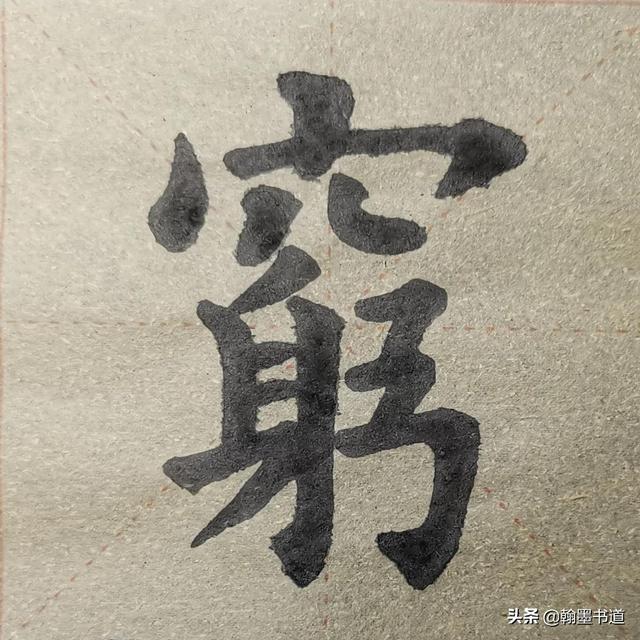 窮
头条 @翰墨书道